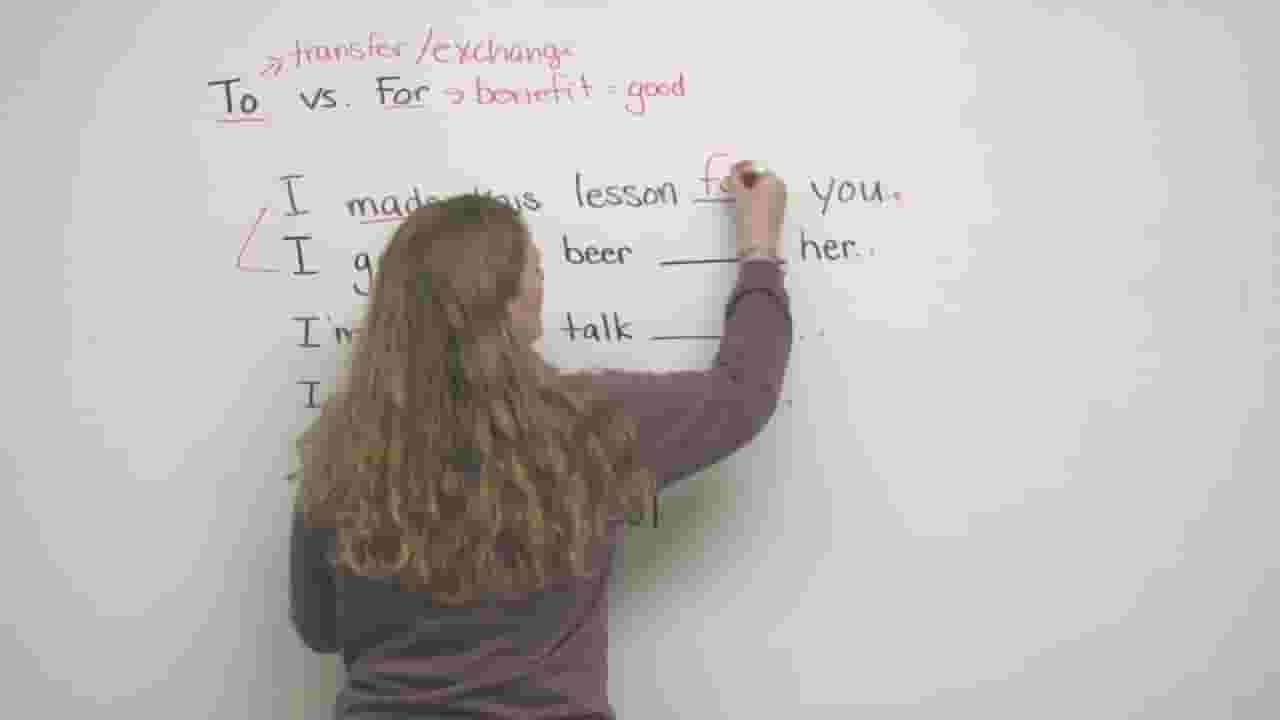 transfer/exchange
To vs. For → benefit = good
I made this lesson fo you.
I beer ____ her.
I'm talk ____
I